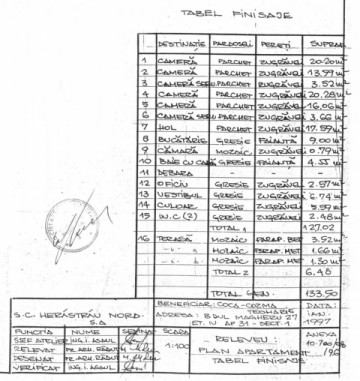 TABEL FINISAJE
DESTINAȚIE PARDOSELI PEREȚI SUPRAF.
1 CAMERĂ PARCHET ZUGRĂVELI 20.20 m²
2 CAMERĂ PARCHET ZUGRĂVELI 13.99 m²
3 CAMERĂ PARCHET ZUGRĂVELI 3.52 m²
4 CAMERĂ PARCHET ZUGRĂVELI 20.28 m²
5 CAMERĂ PARCHET ZUGRĂVELI 16.06 m²
6 CAMERĂ PARCHET ZUGRĂVELI 3.66 m²
7 HOL PARCHET ZUGRĂVELI 17.59 m²
8 BUCĂTĂRIE GRESIE FAIANȚĂ 9.00 m²
9 CĂMARĂ MOZAIC ZUGRĂVELI 0.79 m²
10 BAIE CU CADĂ GRESIE FAIANȚĂ 4.55 m²
11 DEBARA - - -
12 OFICIU GRESIE ZUGRĂVELI 2.57 m²
13 VESTIBUL GRESIE ZUGRĂVELI 6.74 m²
14 CULOAR GRESIE ZUGRĂVELI 5.59 m²
15 W.C (2) GRESIE ZUGRĂVELI 2.48 m²
TOTAL 1 127.02
16 TERASĂ MOZAIC PARAP. BET 3.52 m²
MOZAIC PARAP. MET 1.66 m²
MOZAIC PARAP. MET 1.30 m²
TOTAL 2 6.48
TOTAL GEN. 133.50
S.C. HERĂSTRĂU NORD S.A
BENEFICIAR: COCA-COZMA TEOHARIE
ADRESA: B.DUL MAGHERU 27
ET. IV AP 31 - SECT. 1
DATA: IAN. 1997
FUNCȚIA NUME SEMNAT SCARA
ȘEF ATELIER ING. I. ASMUL
RELEVAT PR. ARH. RĂDUȚ
DESENAT PR. ARH. RĂDUȚ
VERIFICAT ING. I. ASMUL
1:100
RELEVEU:
PLAN APARTAMENT
TABEL FINISAJE
ANEXA